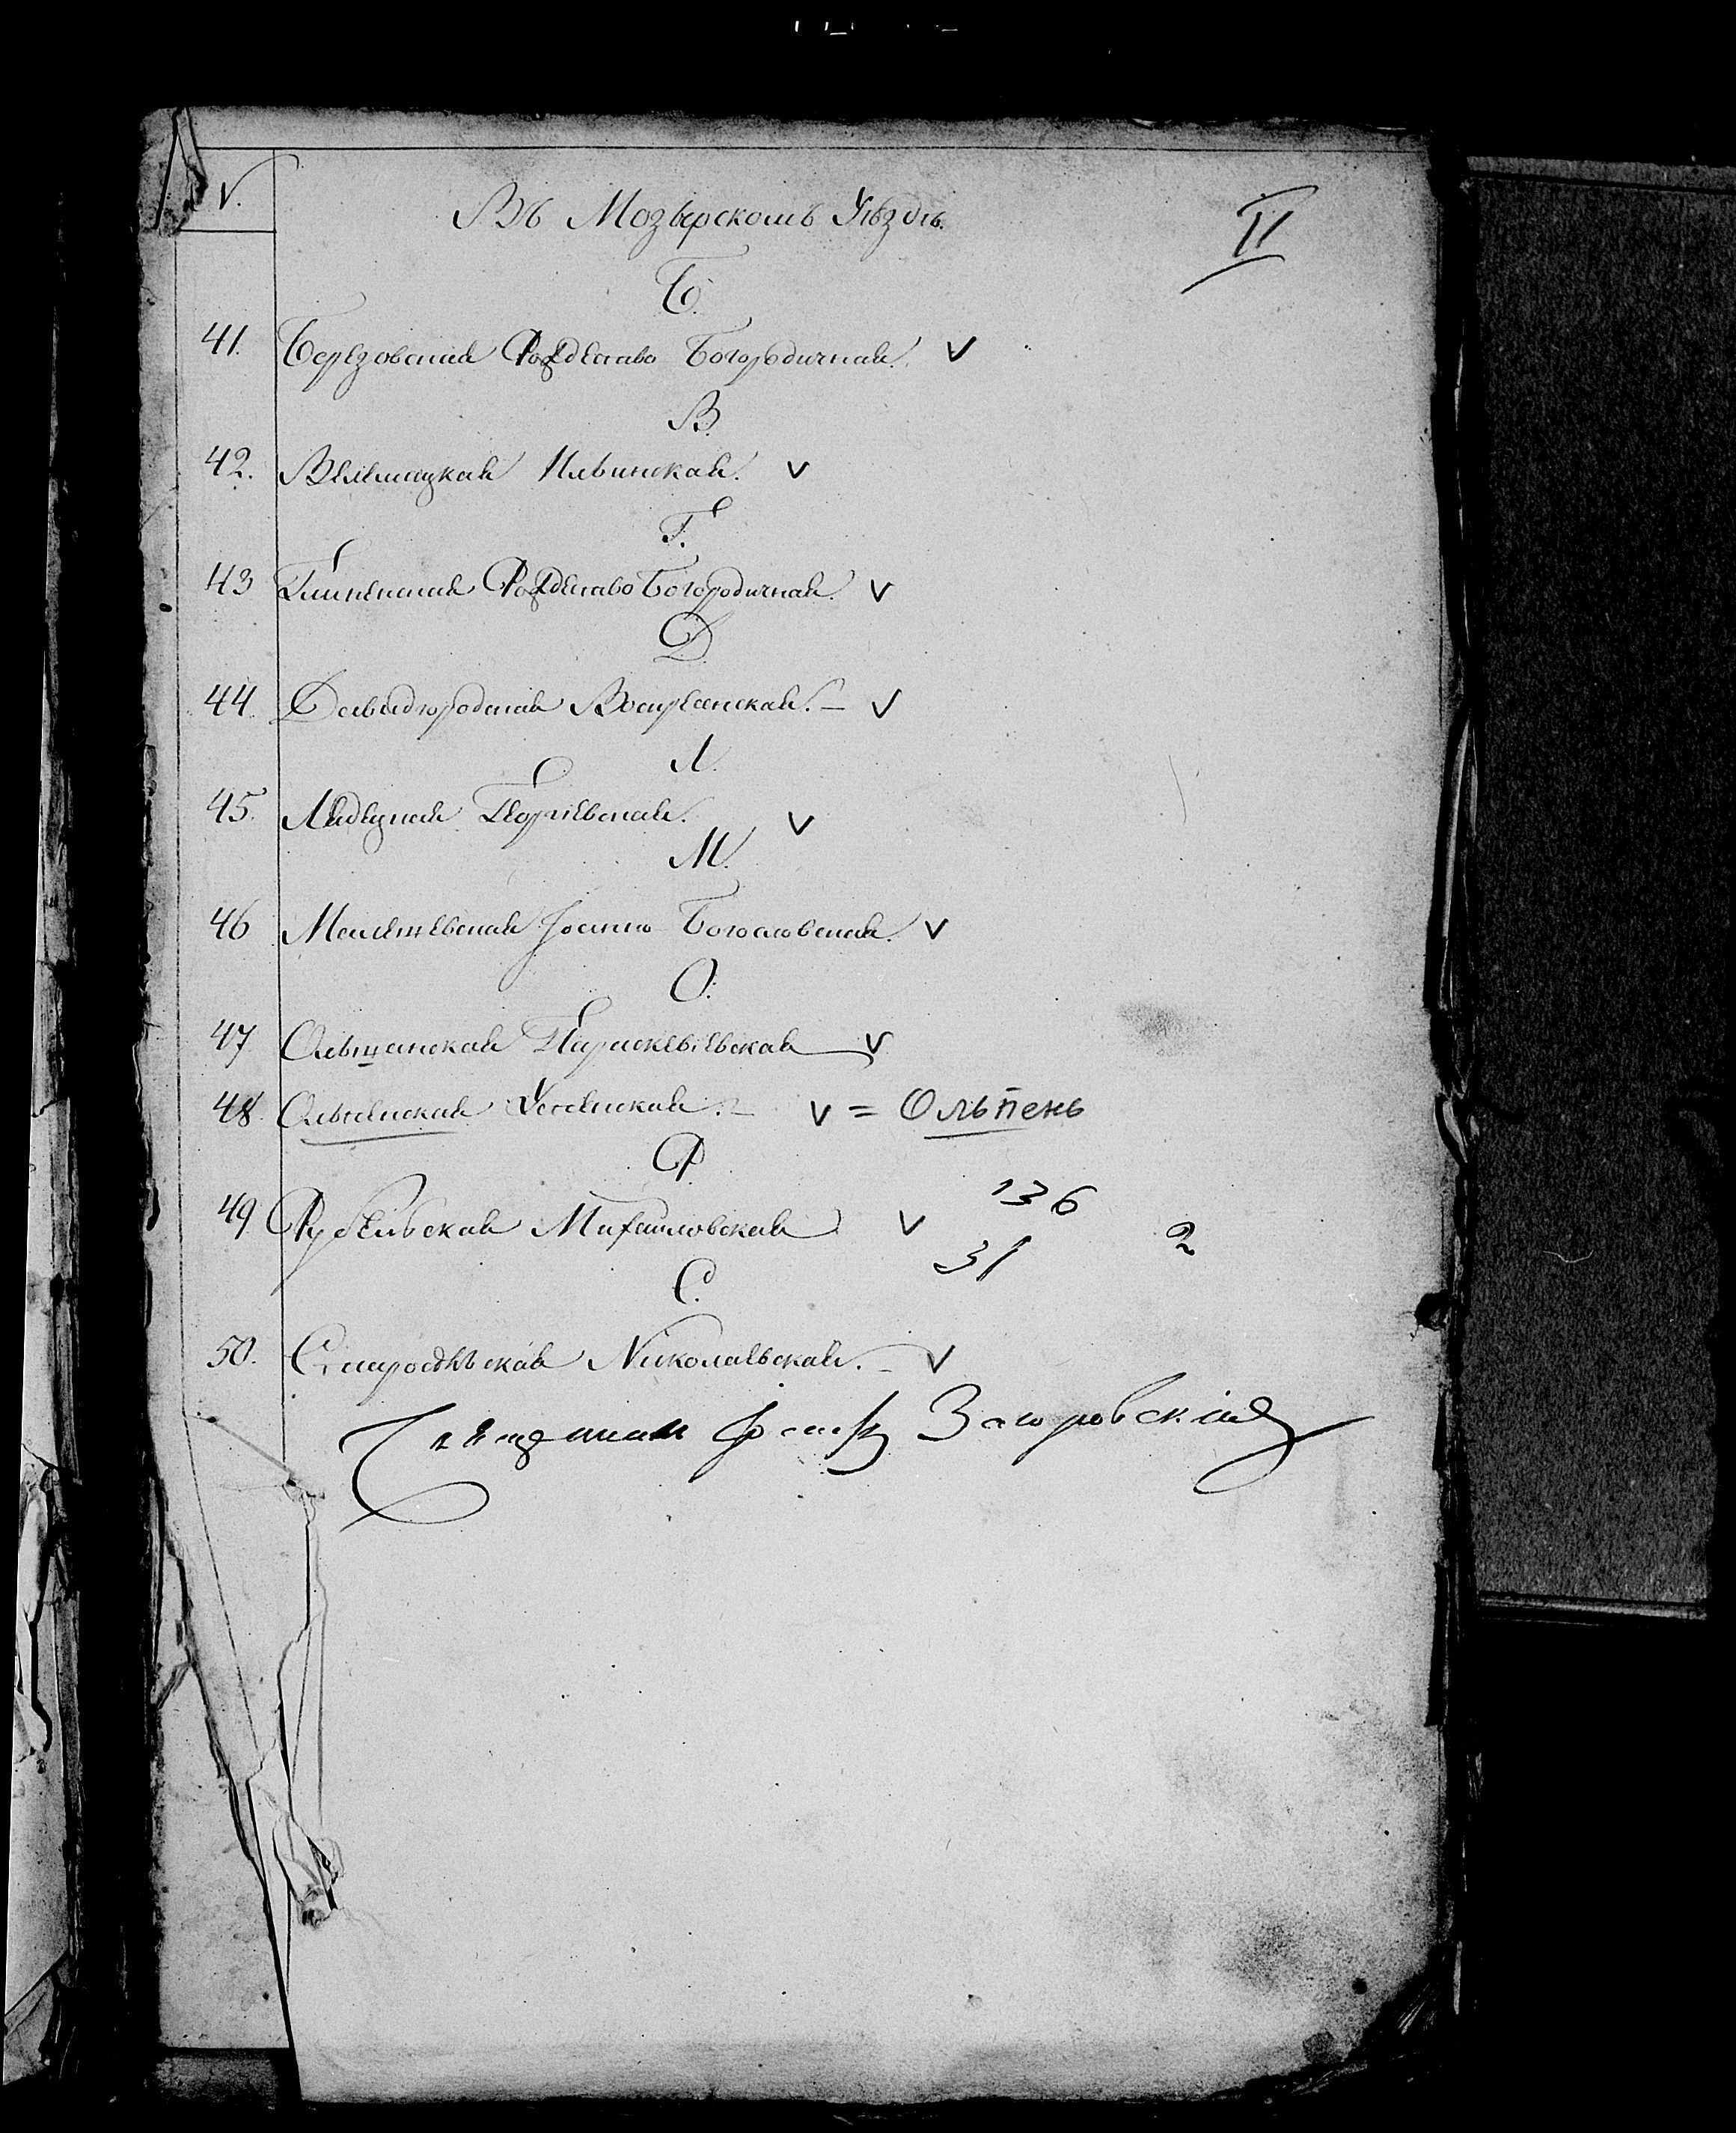 V.
Въ Мозырскомъ Уѣздѣ.
II
Б.
41. Березовская Рождество Богородичная. V
В.
42. Велемицкая Ильинская. V
Г.
43 Глиненская Рождество Богородичная. V
Д
44. Давидгородская Воскресенская. - V
Л.
45. Лядецкая Георгіевская. V
М.
46 Мелешевская Іоанно Богословская. V
О.
47 Ольшанская Параскевіевская V
48. Ольпенская Успенская. - V = Ольпень
Р.
136
49. Рубельская Михайловская V 2
31
С.
50. Старосѣльская Николаевская. - V
Священникъ Загоровскій